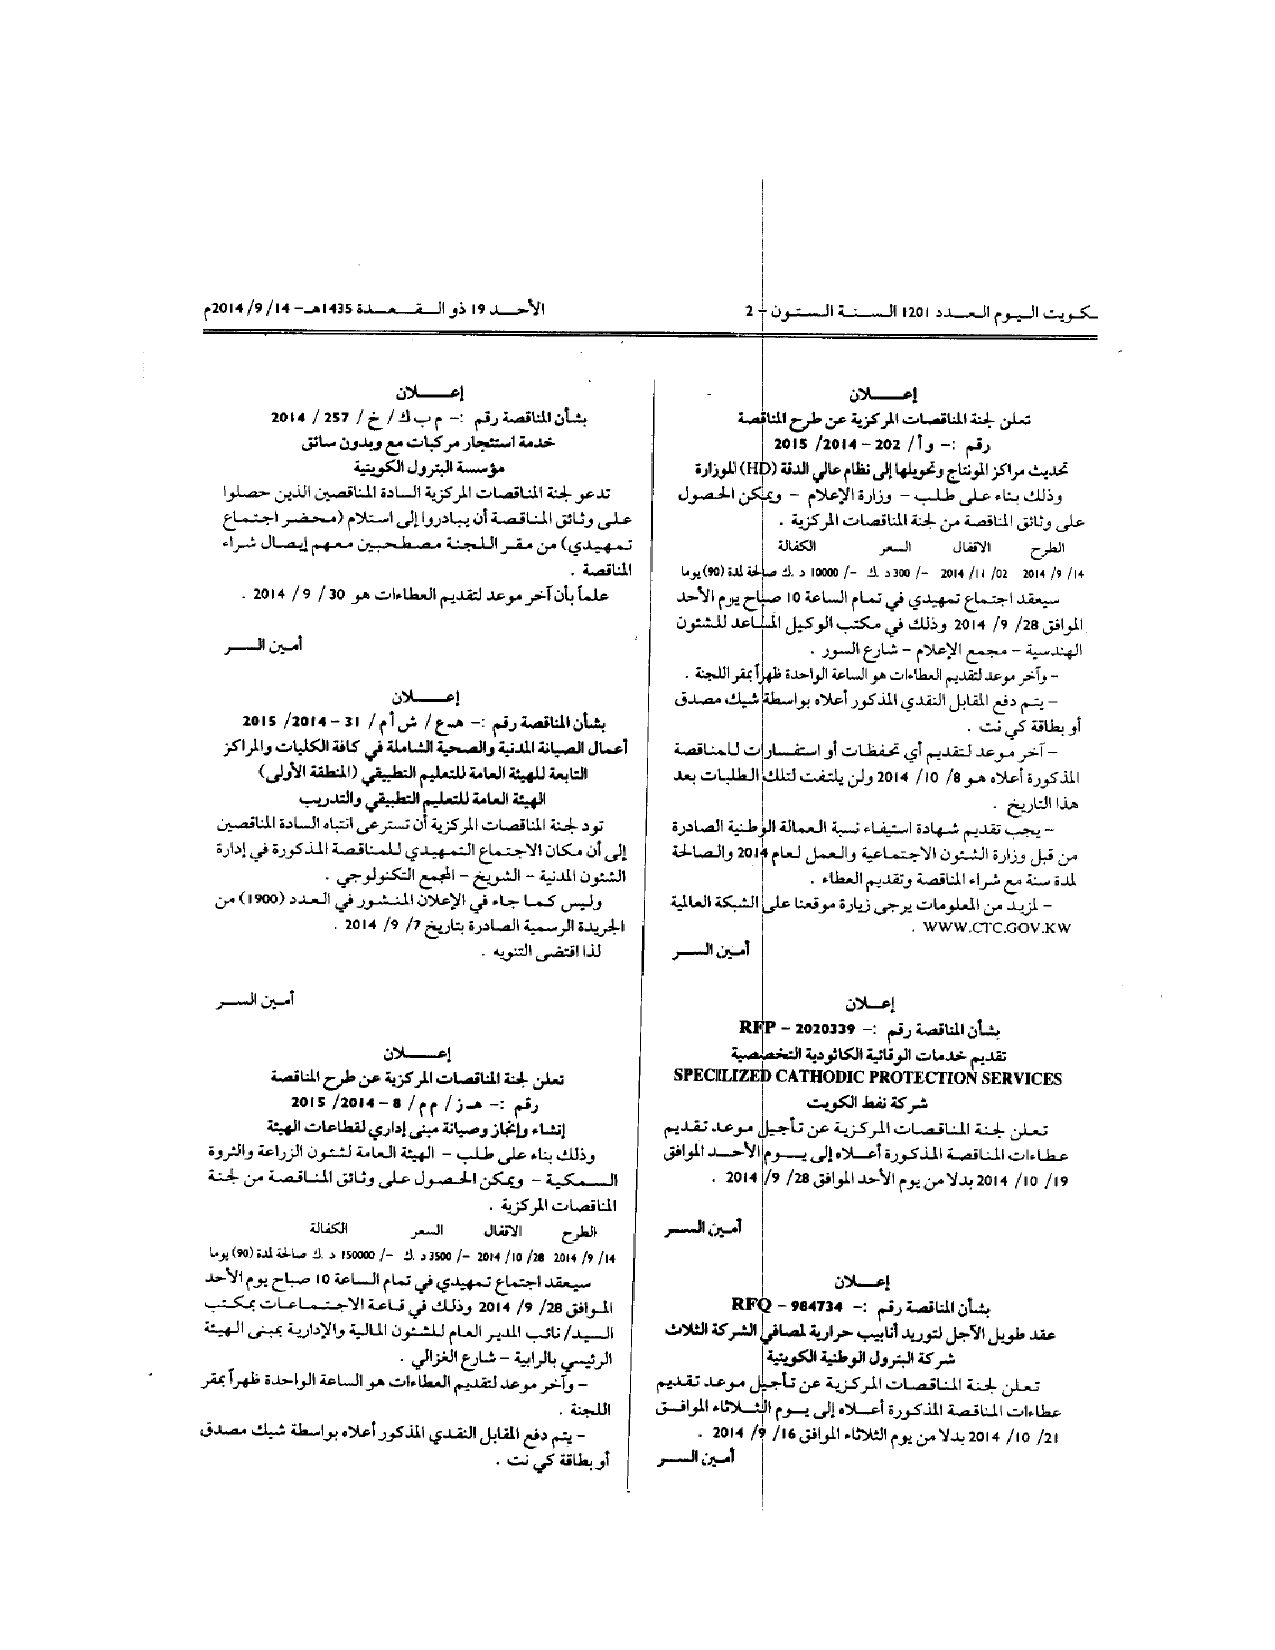 ـكـويـت الـيـوم الـعـدد 1201 الـسـنـة الـسـتـون - 2
الأحــد 19 ذو الـقـعـدة 1435هـ - 14 /9/ 2014م
إعـــلان
تعلن لجنة المناقصات المركزية عن طرح المناقصة
رقم :- وأ/ 202 - 2014 /2015
تحديث مراكز المونتاج وتحويلها إلى نظام عالي الدقة (HD) للوزارة
وذلك بناء على طلب - وزارة الإعلام - ويمكن الحصول
على وثائق المناقصة من لجنة المناقصات المركزية .
الطرح الاقفال السعر الكفالة
14 /9/ 2014 02 /11/ 2014 -/ 300 د .ك -/ 10000 د .ك صالحة لمدة (90) يوما
سيعقد اجتماع تمهيدي في تمام الساعة 10 صباح يوم الأحد
الموافق 28 /9/ 2014 وذلك في مكتب الوكيل المساعد للشئون
الهندسية - مجمع الإعلام - شارع السور .
- وآخر موعد لتقديم العطاءات هو الساعة الواحدة ظهراً بمقر اللجنة .
- يتم دفع المقابل النقدي المذكور أعلاه بواسطة شيك مصدق
أو بطاقة كي نت .
- آخر موعد لتقديم أي تحفظات أو استفسارات للمناقصة
المذكورة أعلاه هو 8 /10/ 2014 ولن يلتفت لتلك الطلبات بعد
هذا التاريخ .
- يجب تقديم شهادة استيفاء نسبة العمالة الوطنية الصادرة
من قبل وزارة الشئون الاجتماعية والعمل لعام 2014 والصالحة
لمدة سنة مع شراء المناقصة وتقديم العطاء .
- لمزيد من المعلومات يرجى زيارة موقعنا على الشبكة العالمية
WWW.CTC.GOV.KW .
أمـين الـســر
إعـــلان
بشأن المناقصة رقم :- RFP - 2020339
تقديم خدمات الوقائية الكاثودية التخصصية
SPECIILIZED CATHODIC PROTECTION SERVICES
شركة نفط الكويت
تعلن لجنة المناقصات المركزية عن تأجيل موعد تقديم
عطاءات المناقصة المذكورة أعلاه إلى يـوم الأحـد الموافق
19 /10/ 2014 بدلا من يوم الأحد الموافق 28 /9/ 2014 .
أمـين الـســر
إعـــلان
بشأن المناقصة رقم :- RFQ - 984734
عقد طويل الأجل لتوريد أنابيب حرارية لمصافي الشركة الثلاث
شركة البترول الوطنية الكويتية
تعلن لجنة المناقصات المركزية عن تأجيل موعد تقديم
عطاءات المناقصة المذكورة أعلاه إلى يـوم الثلاثاء الموافـق
21 /10/ 2014 بدلا من يوم الثلاثاء الموافق 16 /9/ 2014 .
أمـين الـســر
إعـــلان
بشأن المناقصة رقم :- م ب ك/ خ/ 257 /2014
خدمة استئجار مركبات مع وبدون سائق
مؤسسة البترول الكويتية
تدعو لجنة المناقصات المركزية السادة المناقصين الذين حصلوا
على وثائق المناقصة أن يبادروا إلى استلام (محضر اجتماع
تمهيدي) من مقر اللجنة مصطحبين معهم إيصال شراء
المناقصة .
علماً بأن آخر موعد لتقديم العطاءات هو 30 /9/ 2014 .
أمـين الـســر
إعـــلان
بشأن المناقصة رقم :- هـ ع/ ش أم/ 31 - 2014 /2015
أعمال الصيانة المدنية والصحية الشاملة في كافة الكليات والمراكز
التابعة للهيئة العامة للتعليم التطبيقي (المنطقة الأولى)
الهيئة العامة للتعليم التطبيقي والتدريب
تود لجنة المناقصات المركزية أن تسترعي انتباه السادة المناقصين
إلى أن مكان الاجتماع التمهيدي للمناقصة المذكورة في إدارة
الشئون المدنية - الشويخ - المجمع التكنولوجي .
وليس كما جاء في الإعلان المنشور في العدد (1900) من
الجريدة الرسمية الصادرة بتاريخ 7 /9/ 2014 .
لذا اقتضى التنويه .
أمـين الـســر
إعـــلان
تعلن لجنة المناقصات المركزية عن طرح المناقصة
رقم :- هـ ز/ م م/ 8 - 2014 /2015
إنشاء وإنجاز وصيانة مبنى إداري لقطاعات الهيئة
وذلك بناء على طلب - الهيئة العامة لشئون الزراعة والثروة
السمكية - ويمكن الحصول على وثائق المناقصة من لجنة
المناقصات المركزية .
الطرح الاقفال السعر الكفالة
14 /9/ 2014 28 /10/ 2014 -/ 3500 د .ك -/ 150000 د .ك صالحة لمدة (90) يوما
سيعقد اجتماع تمهيدي في تمام الساعة 10 صباح يوم الأحد
الموافق 28 /9/ 2014 وذلك في قاعة الاجتماعات بمكتب
السيد/ نائب المدير العام للشئون المالية والإدارية بمبنى الهيئة
الرئيسي بالرابية - شارع الغزالي .
- وآخر موعد لتقديم العطاءات هو الساعة الواحدة ظهراً بمقر
اللجنة .
- يتم دفع المقابل النقدي المذكور أعلاه بواسطة شيك مصدق
أو بطاقة كي نت .